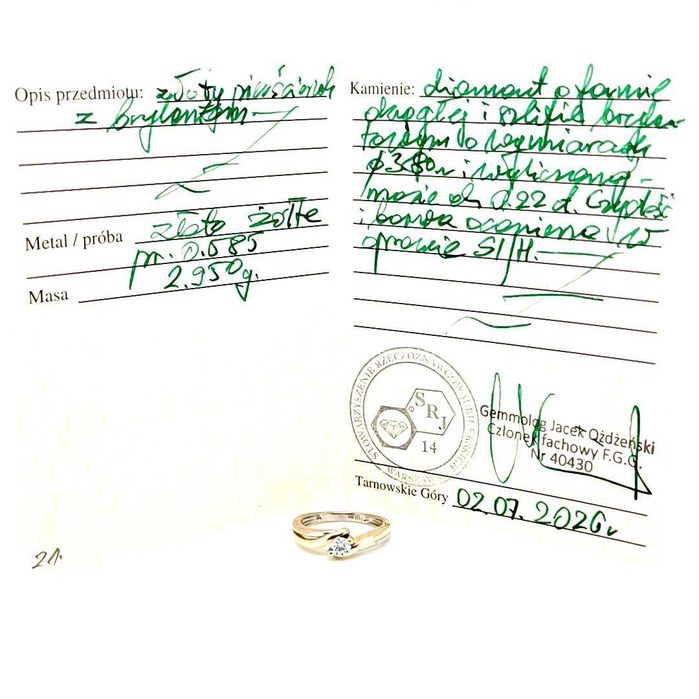 Opis przedmiotu: złoty pierścionek
z brylantem
Metal / próba złoto żółte
pr. 0.585
Masa 2.950g.
Kamienie: diamant o formie
okrągłej i szlifie brylan
towym o wymiarach
i wyliczonej
masie ok 0.22 ct. Czystość
i barwa oceniena w
oprawie SI/H.
STOWARZYSZENIE RZECZOZNAWCÓW JUBILERSKICH
WARSZAWA
SRJ
14
Gemmolog Jacek Ożdżeński
Członek fachowy F.G.G.
Nr 40430
Tarnowskie Góry 02.07.2020r
21.